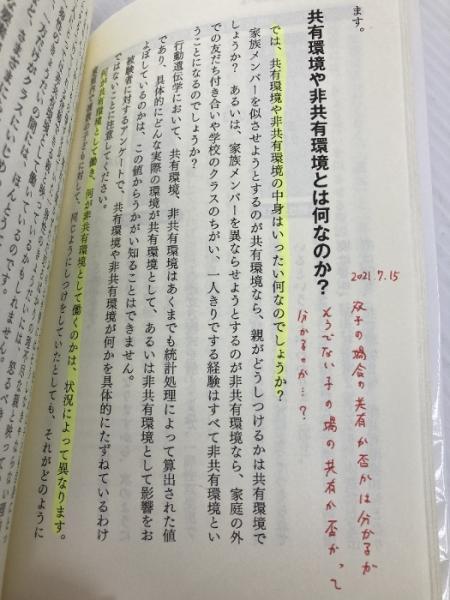 ます。
共有環境や非共有環境とは何なのか?
では、共有環境や非共有環境の中身はいったい何なのでしょうか?
家族メンバーを似させようとするのが共有環境なら、親がどうしつけるかは共有環境で
しょうか? あるいは、家族メンバーを異ならせようとするのが非共有環境なら、家庭の外
での友だち付き合いや学校のクラスのちがい、一人きりでする経験はすべて非共有環境とい
うことになるのでしょうか?
行動遺伝学において、共有環境、非共有環境はあくまでも統計処理によって算出された値
であり、具体的にどんな実際の環境が共有環境として、あるいは非共有環境として影響をお
よぼしているのかは、この値からうかがい知ることはできません。
被験者に対するアンケートで、共有環境や非共有環境が何かを具体的にたずねているわけ
ではないことに注意してください。
何が共有環境として働き、何が非共有環境として働くのかは、状況によって異なります。
対して、同じようにしつけをしていたとしても、それがどのように
2021.7.15
双子の場合の共有か否かは分かるが
そうでない子の場の共有か否かって
分かるのか…?